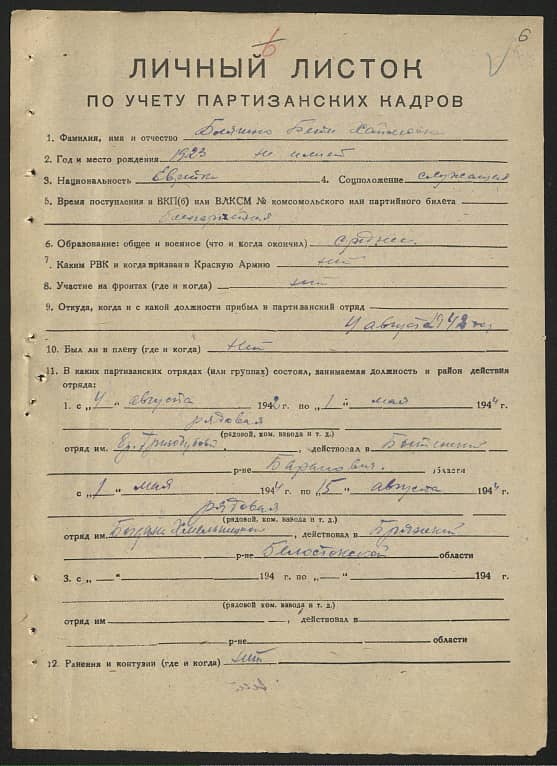 6
6
ЛИЧНЫЙ ЛИСТОК
ПО УЧЕТУ ПАРТИЗАНСКИХ КАДРОВ
1. Фамилия, имя и отчество
2. Год и место рождения 1923
3. Национальность Еврейка 4. Соцположение служащая
5. Время поступления в ВКП(б) или ВЛКСМ № комсомольского или партийного билета
беспартийная
6. Образование: общее и военное (что и когда окончил) среднее
7. Каким РВК и когда призван в Красную Армию нет
8. Участие на фронтах (где и когда) нет
9. Откуда, когда и с какой должности прибыл в партизанский отряд
4 августа 1942 год
10. Был ли в плену (где и когда) нет
11. В каких партизанских отрядах (или группах) состоял, занимаемая должность и район действия
отряда:
1. с „4" августа 1942 г. по „1" мая 1944 г.
рядовая
(рядовой, ком. взвода и т. д.)
отряд им. , действовал в
р-не Баранович. области
с „1" мая 1944 г. по „15" августа 1944 г.
рядовая
(рядовой, ком. взвода и т. д.)
отряд им. Богдана Хмельницкого, действовал в
р-не Белостокской области
3. с „—" 194 г. по „—" 194 г.
(рядовой, ком. взвода и т. д.)
отряд им , действовал в
р-не области
12. Ранения и контузии (где и когда) нет